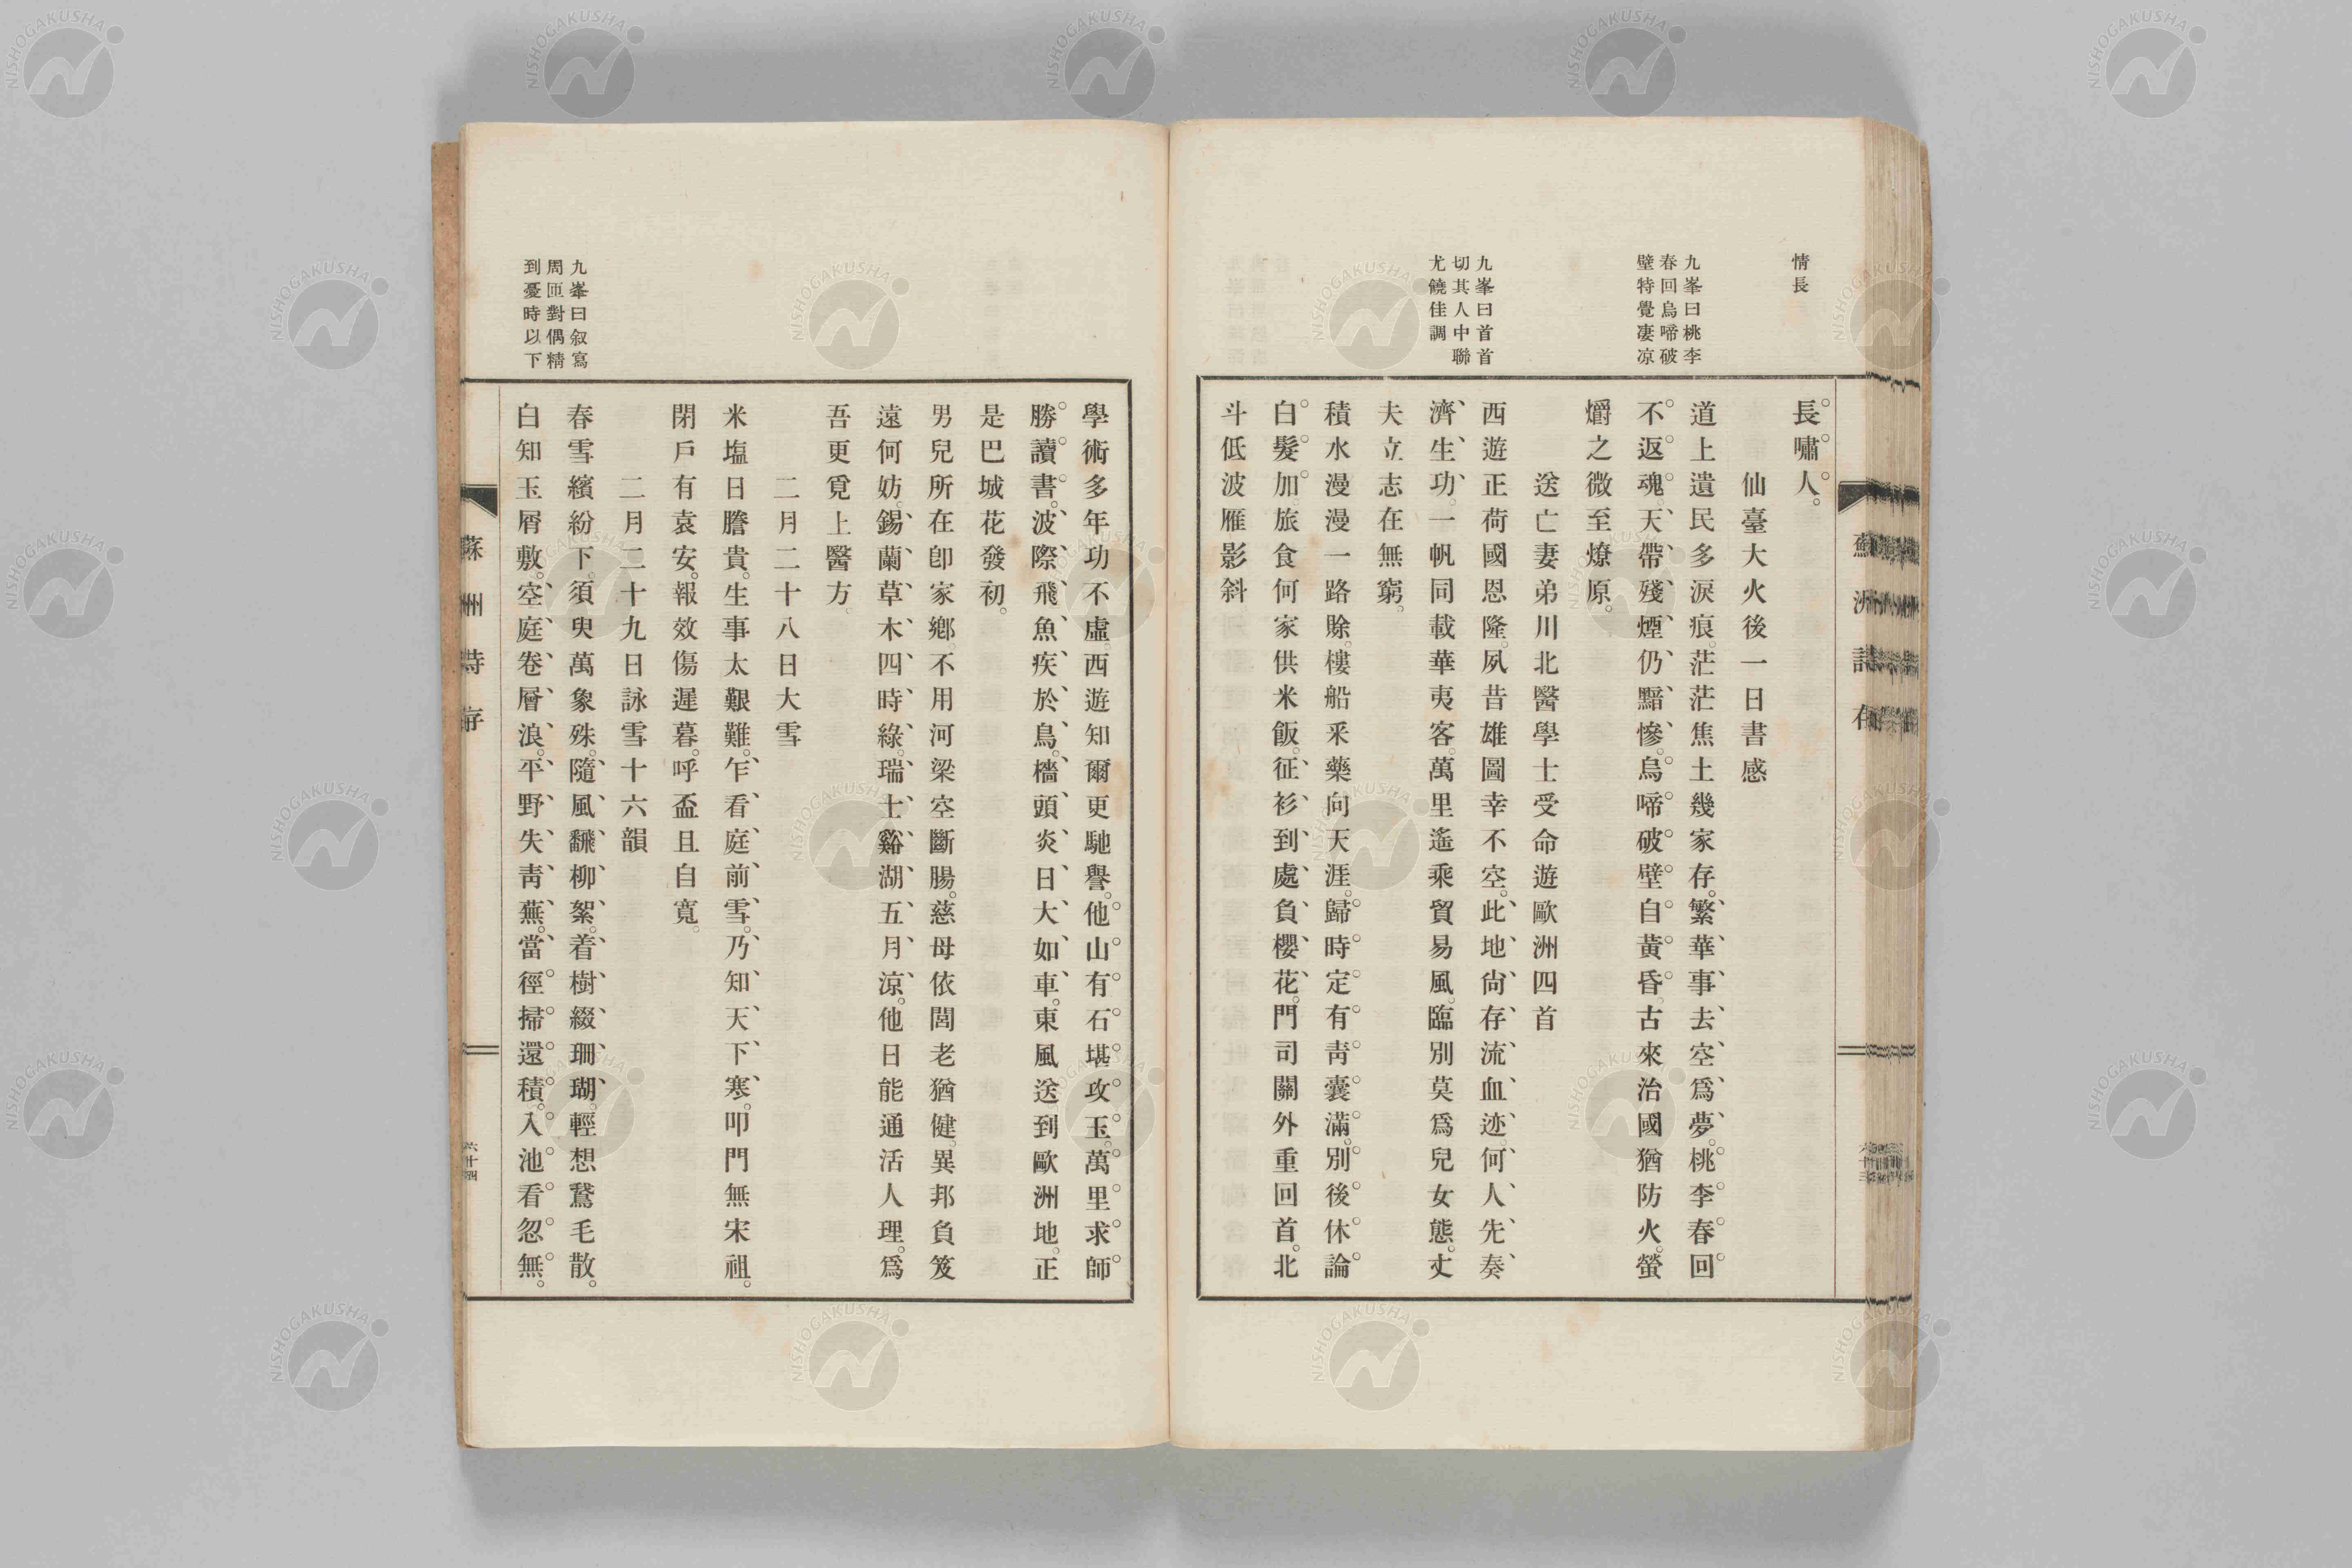 情長
九峯曰桃李
春回烏啼破
壁特覺凄凉
九峯曰首首
切其人中聯
尤饒佳調
長嘯人。
仙臺大火後一日書感
道上遺民多淚痕。茫茫焦土幾家存。繁華事去空爲夢。桃李春回
不返魂。天帶殘煙仍黯慘。烏啼破壁自黃昏。古來治國猶防火。螢
爝之微至燎原。
送亡妻弟川北醫學士受命遊歐洲四首
西遊正荷國恩隆。夙昔雄圖幸不空。此地尙存流血迹。何人先奏
濟生功。一帆同載華夷客。萬里遙乘貿易風。臨別莫爲兒女態。丈
夫立志在無窮。
積水漫漫一路賒。樓船釆藥向天涯。歸時定有靑囊滿。別後休論
白髮加。旅食何家供米飯。征衫到處負櫻花。門司關外重回首。北
斗低波雁影斜
蘇洲詩存
六十三
學術多年功不虛。西遊知爾更馳譽。他山有石堪攻玉。萬里求師
勝讀書。波際飛魚疾於鳥。檣頭炎日大如車。東風送到歐洲地。正
是巴城花發初。
男兒所在卽家鄕。不用河梁空斷腸。慈母依閭老猶健。異邦負笈
遠何妨。錫蘭草木四時綠。瑞士谿湖五月涼。他日能通活人理。爲
吾更覓上醫方。
二月二十八日大雪
米塩日騰貴。生事太艱難。乍看庭前雪。乃知天下寒。叩門無宋祖。
閉戶有袁安。報效傷遲暮。呼盃且自寬。
二月二十九日詠雪十六韻
春雪繽紛下。須臾萬象殊。隨風飜柳絮。着樹綴珊瑚。輕想鵞毛散。
白知玉屑敷。空庭卷層浪。平野失靑蕪。當徑掃還積。入池看忽無。
九峯曰叙寫
周匝對偶精
到憂時以下
蘇州詩存
六十四
NISHOGAKUSHA